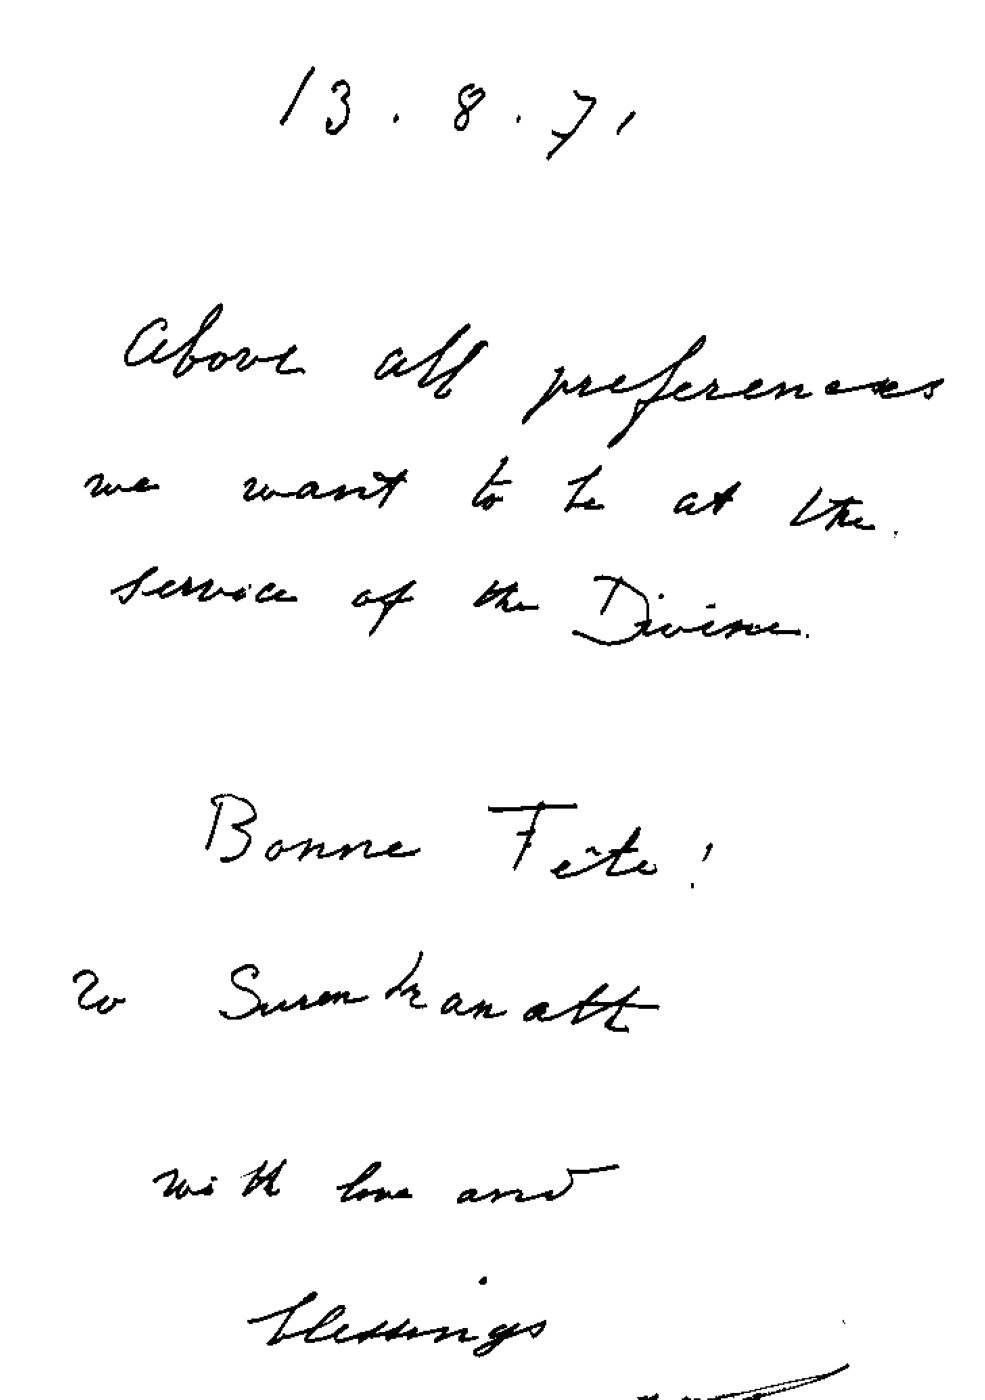 13.8.71
Above all preferences
we want to be at the
service of the Divine.
Bonne Fête!
to Surendranath
with love and
blessings